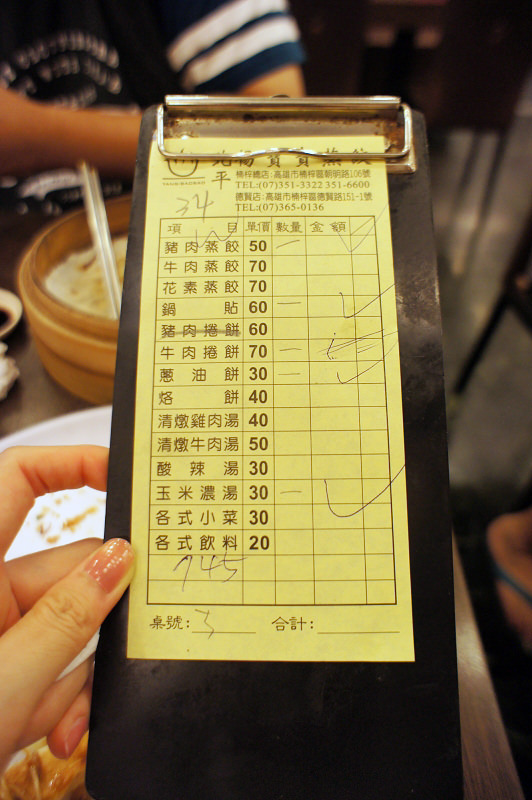 蒸餃
平
楠梓總店:高雄市楠梓區朝明路106號
TEL:(07)351-3322 351-6600
德賢店:高雄市楠梓區德賢路151-1號
TEL:(07)365-0136
34
項 目 單價 數量 金額
豬肉蒸餃 50 一
牛肉蒸餃 70
花素蒸餃 70
鍋貼 60 一
豬肉捲餅 60
牛肉捲餅 70 一
蔥油餅 30 一
烙餅 40
清燉雞肉湯 40
清燉牛肉湯 50
酸辣湯 30
玉米濃湯 30 一
各式小菜 30
各式飲料 20
745
桌號: 3 合計: